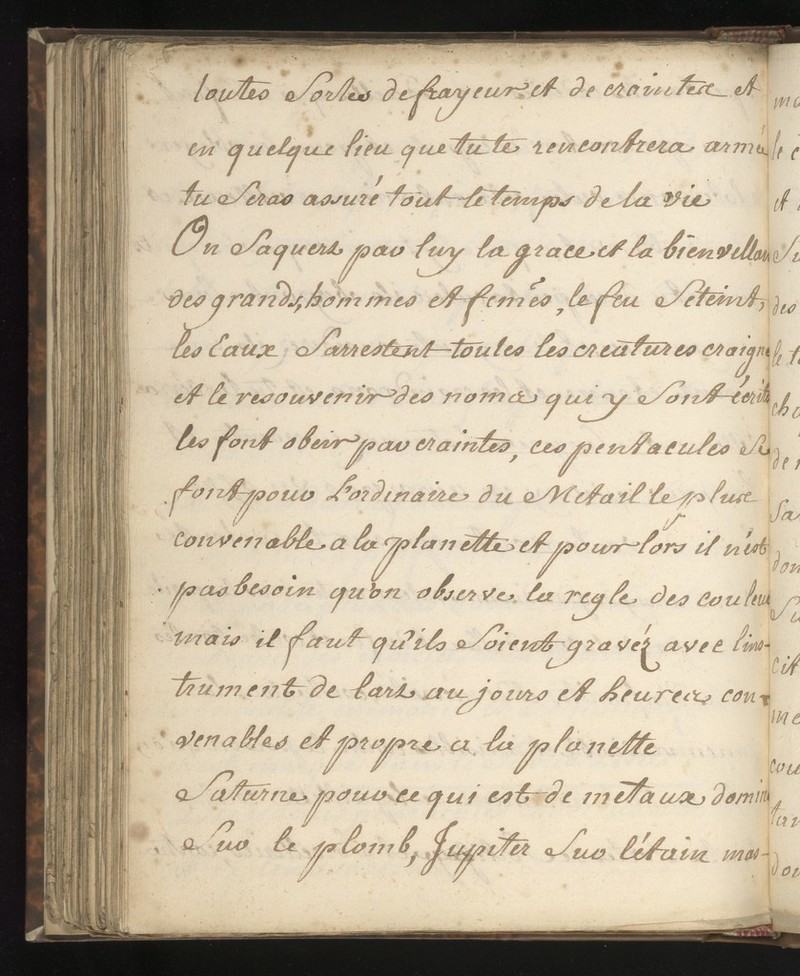 toutes Sortes de frayeur et de craintes et
en quelque lieu que tu te rencontrera armé
tu Seras assuré tout le temps de la vie
On Saquert par luy la grace et la bienvellan
des grands, hommes et femẽs, le feu Seteint,
les Eaux Sarrestent toutes les creatures craigne
et le resouvenir des noms qui y Sont écrits
les font obeir par craintes, ces pentacules Se
font pour Lordinaire du Metail le plus
convenable a la planette et pour lors il n'est
pas besoin qu'on observe la regle des couleur
mais il faut qu'ils Soient gravéz avec lins-
trument de lart au jours et heures con-
venables et propre a la planette
Saturne pour ce qui est de metaux domine
Sur le plomb, Jupiter Sur létain mar-